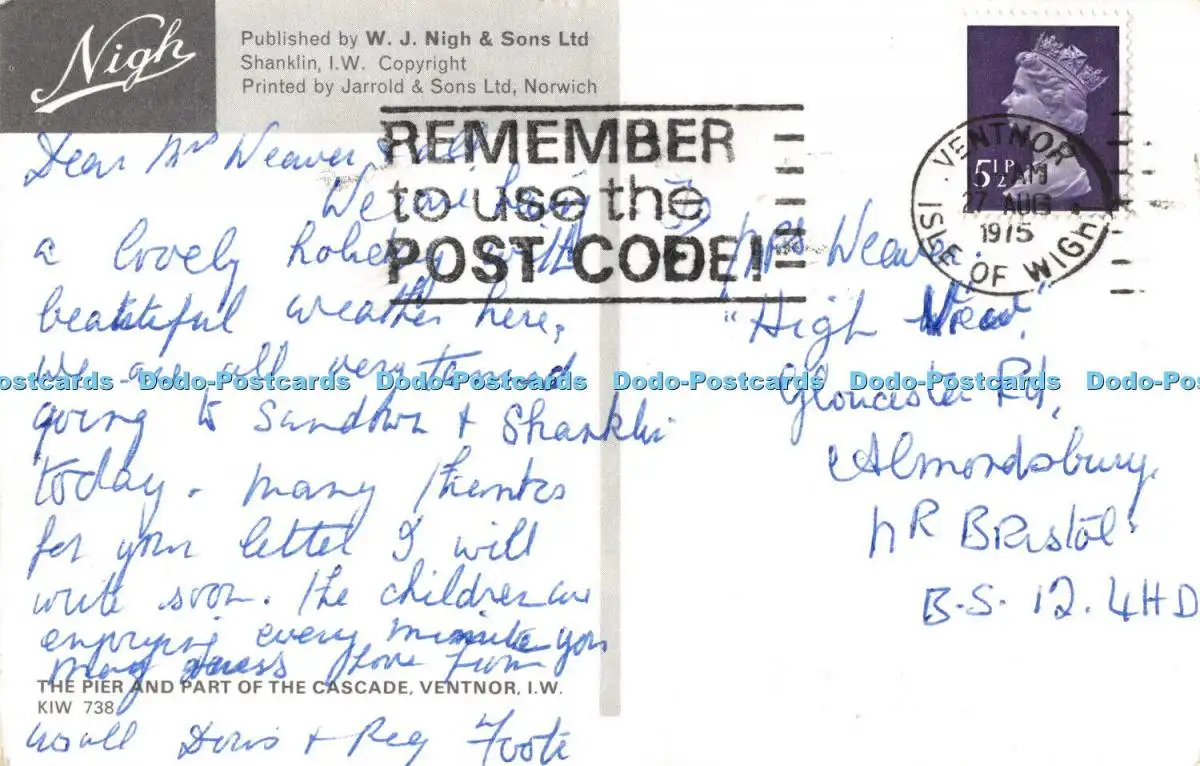 Nigh
Published by W. J. Nigh & Sons Ltd
Shanklin, I.W. Copyright
Printed by Jarrold & Sons Ltd, Norwich
REMEMBER
to use the
POST CODE!
VENTNOR
AM
27 AUG
1975
ISLE OF WIGHT
5½P
Dear Mrs Weaver & all
We are having
a lovely holiday with
beautiful weather here,
we are all very tanned
going to Sandown & Shanklin
today. Many thanks
for your letter I will
write soon. The children are
enjoying every minute you
may guess love from
us all Doris & Reg Foote
Mrs Weaver.
"High View",
Gloucester Rd,
Almondsbury,
NR BRISTOL
B.S. 12. 4HD
Dodo-Postcards Dodo-Postcards Dodo-Postcards Dodo-Postcards Dodo-Postcards Dodo-Postcards
THE PIER AND PART OF THE CASCADE, VENTNOR, I.W.
KIW 738